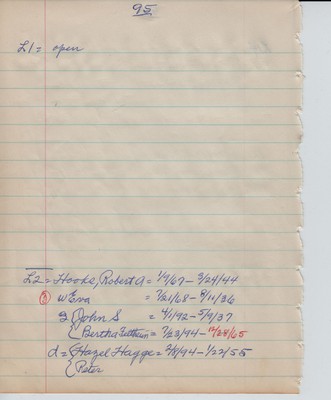 95
L1 = open
L2 = Hooks, Robert A = 1/9/67 - 3/24/44
w Eva = 7/21/68 - 8/11/36
John S = 4/1/92 - 5/9/37
Bertha = 7/23/94 - 12/28/65
d = Hazel Hagge = 2/8/94 - 1/22/55
Peter